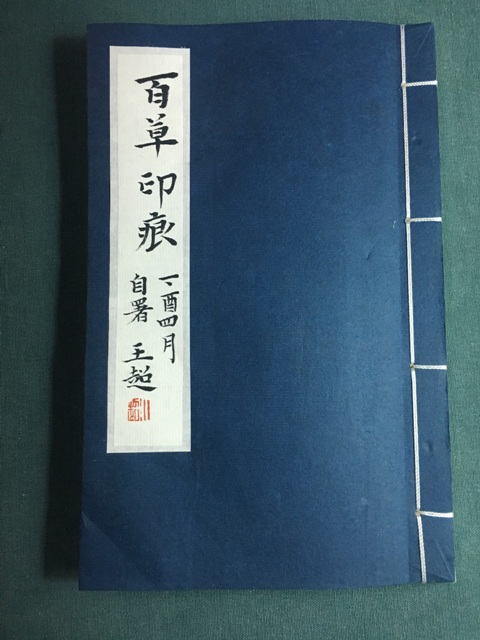 百草印痕
丁酉四月
自署 王超